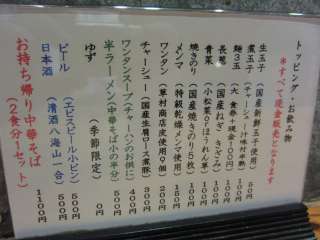 トッピング・お飲み物
*すべて現金販売となります
生玉子(国産新鮮玉子使用) 50円
煮玉子(チャーシュー味付半熟) 100円
麺3玉(大 食券+現金100円) 100円
長葱(国産ねぎ きざみ) 100円
青菜(小松菜orほうれん草) 100円
焼きのり(国産焼きのり5枚) 100円
メンマ(特級乾燥メンマ使用) 150円
ワンタン(草村商店皮使用9個) 200円
チャーシュー(国産生肩ロース煮豚) 300円
ワンタンスープ(チャーハンのお供に) 400円
半ラーメン(中華そば小の半分) 500円
ゆず(季節限定) 0円
ビール(エビスビール小ビン) 500円
日本酒(清酒八海山一合) 500円
お持ち帰り中華そば(2食分1セット) 1100円